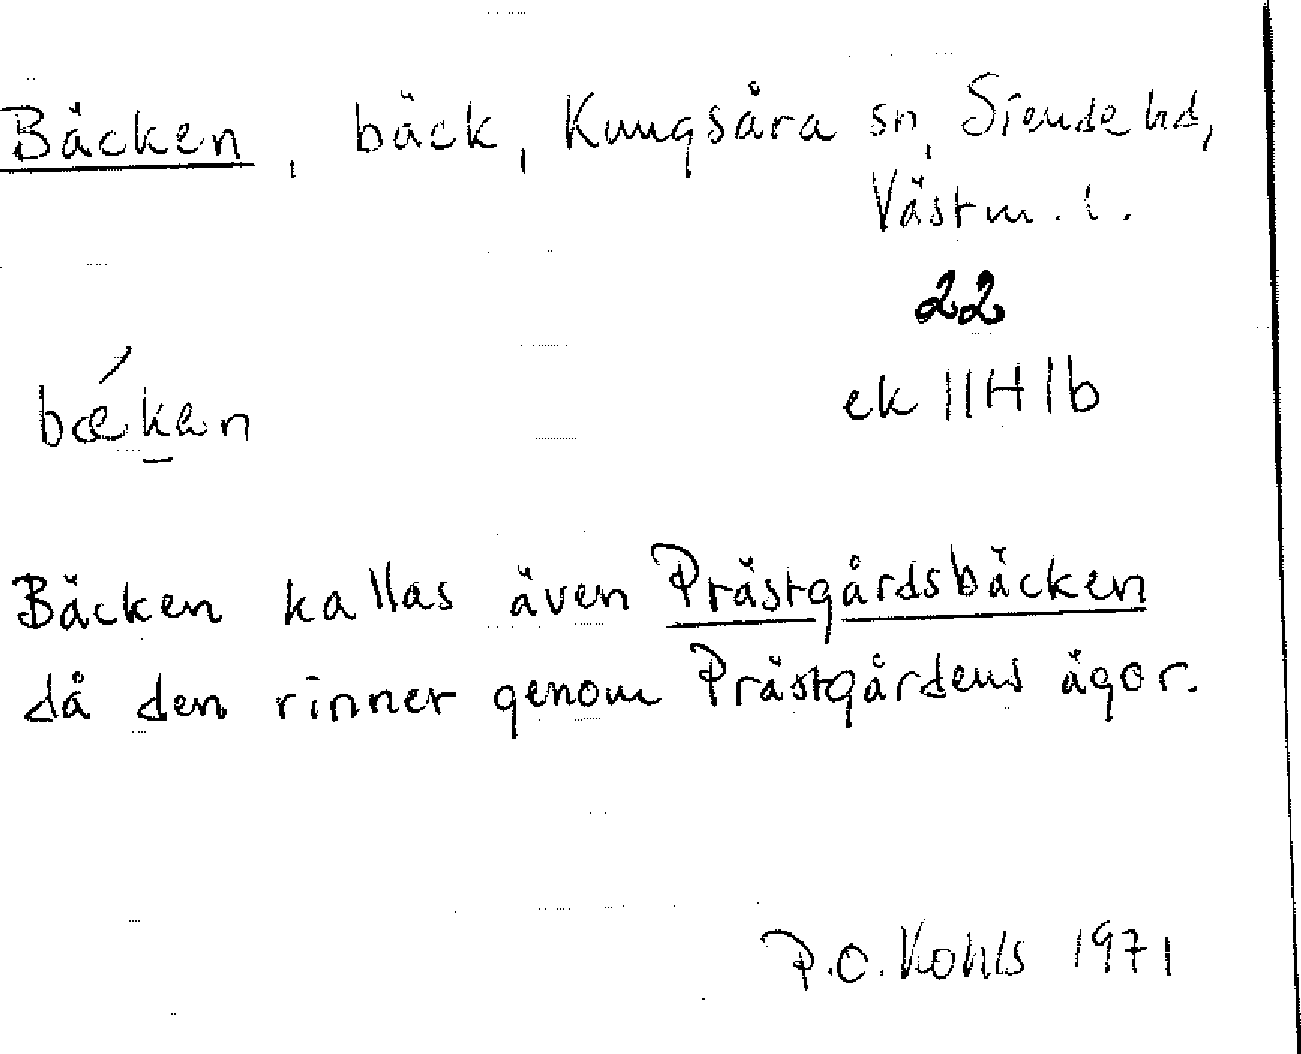 Bäcken, bäck, Kungsåra sn, Siende hd,
Västm. l.
22
bǽkan
ek 11H 1b
Bäcken kallas även Prästgårdsbäcken
då den rinner genom Prästgårdens ägor.
P.O. Kohls 1971